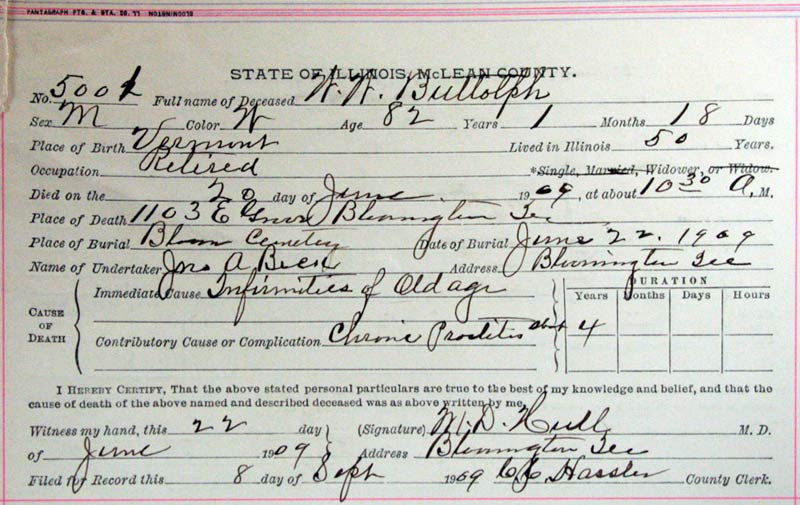 PANTAGRAPH PTG. & STA. CO. BLOOMINGTON
STATE OF ILLINOIS, McLEAN COUNTY.
No. 5001 Full name of Deceased W. W. Bullolph
Sex M Color W Age 82 Years 1 Months 18 Days
Place of Birth Vermont Lived in Illinois 50 Years.
Occupation Retired *Single, Married, Widower, or Widow.
Died on the 20 day of June 1909, at about 10 30 A. M.
Place of Death 1103 E Grove Bloomington Ill
Place of Burial Bloom Cemetery Date of Burial June 22. 1909
Name of Undertaker Jno A Beck Address Bloomington Ill
CAUSE OF DEATH
Immediate Cause Infirmities of Old age
Contributory Cause or Complication Chronic
DURATION
Years Months Days Hours
4
I HEREBY CERTIFY, That the above stated personal particulars are true to the best of my knowledge and belief, and that the
cause of death of the above named and described deceased was as above written by me.
Witness my hand, this 22 day (Signature) M. D. Hull M. D.
of June 1909 Address Bloomington Ill
Filed for Record this 8 day of Sept 1909 Hassler County Clerk.